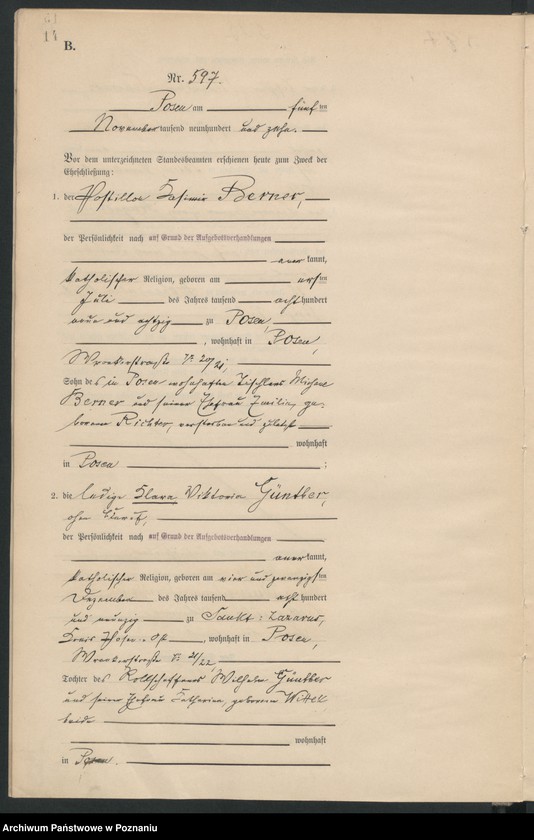 B.
Nr. 597.
Posen am fünften
November tausend neunhundert und zehn.
Vor dem unterzeichneten Standesbeamten erschienen heute zum Zweck der
Eheschließung:
1. der Postillon Kasimir Berner,
der Persönlichkeit nach auf Grund der Aufgebotsverhandlungen
anerkannt,
katholischer Religion, geboren am ersten
Juli des Jahres tausend achthundert
neun und achtzig zu Posen,
, wohnhaft in Posen,
Sohn des in Posen wohnhaften Tischlers Michael
Berner und seiner Ehefrau Emilie, ge-
borenen Richter, verstorben und zuletzt
wohnhaft
in Posen ;
2. die ledige Klara Viktoria Günther,
ohne Beruf,
der Persönlichkeit nach auf Grund der Aufgebotsverhandlungen
anerkannt,
katholischer Religion, geboren am vier und zwanzigsten
Dezember des Jahres tausend achthundert
und neunzig zu Sankt-Lazarus,
Kreis Posen-Ost, wohnhaft in Posen,
21/22
Tochter des Wilhelm Günther
und seiner Ehefrau Katharina, geborenen Wittek,
beide
wohnhaft
in Posen.
Archiwum Państwowe w Poznaniu